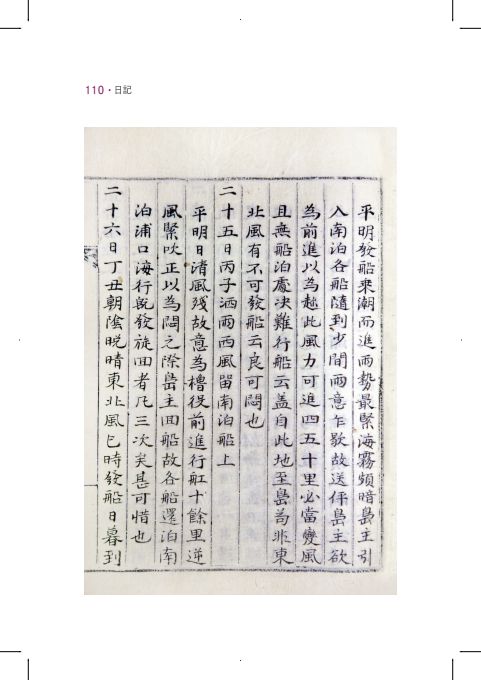 110 · 日記
平明發船乘潮而進雨勢最緊海霧頻暗島主引
入南泊各船隨到少間雨意乍歇故送伻島主欲
為前進以為趂此風力可進四五十里必當變風
且無船泊處决難行船云盖自此地至島為非東
北風有不可發船云良可悶也
二十五日丙子洒雨西風留南泊船上
平明日淸風殘故意為櫓役前進行舡十餘里逆
風緊吹正以為悶之際島主回船故各船還泊南
泊浦口海行旣發旋回者凡三次矣甚可惜也
二十六日丁丑朝陰晩晴東北風巳時發船日暮到